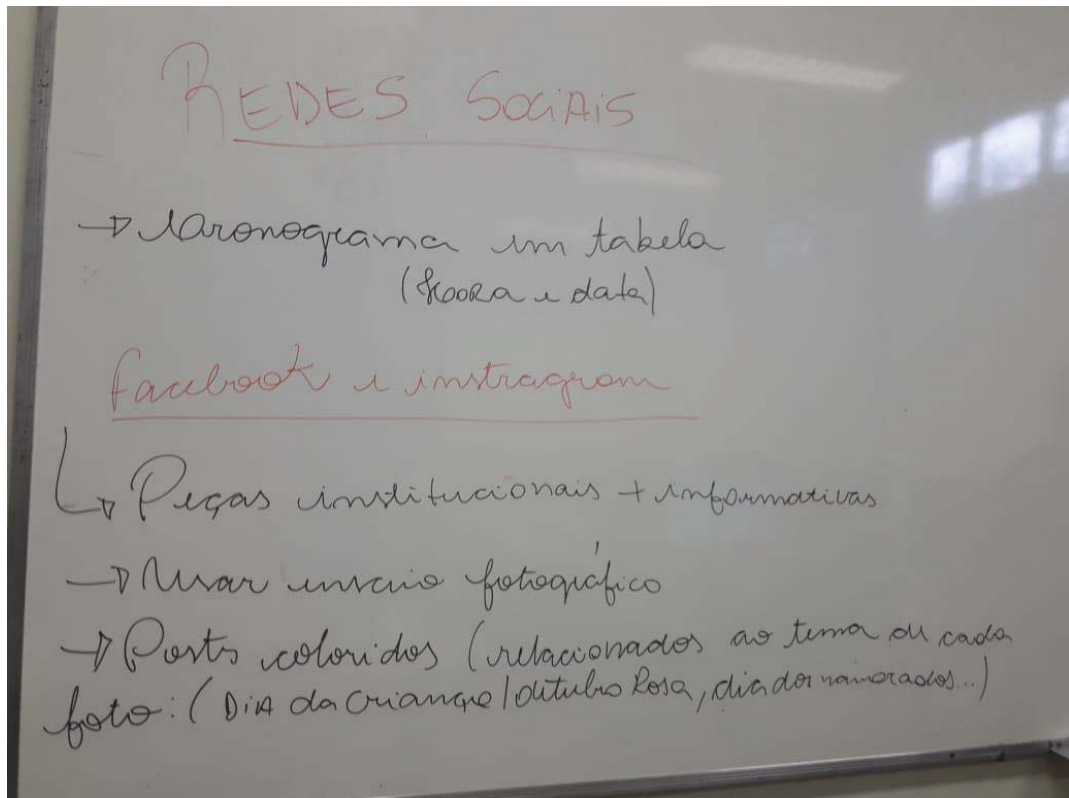 REDES SOCIAIS
→ Cronograma em tabela
(Hoora e data)
Facebook e instragram
↳ Peças institucionais + informativas
→ Usar ensaio fotográfico
→ Posts coloridos (relacionados ao tema de cada
foto: (DiA da criança/outubro Rosa, dia dos namorados...)